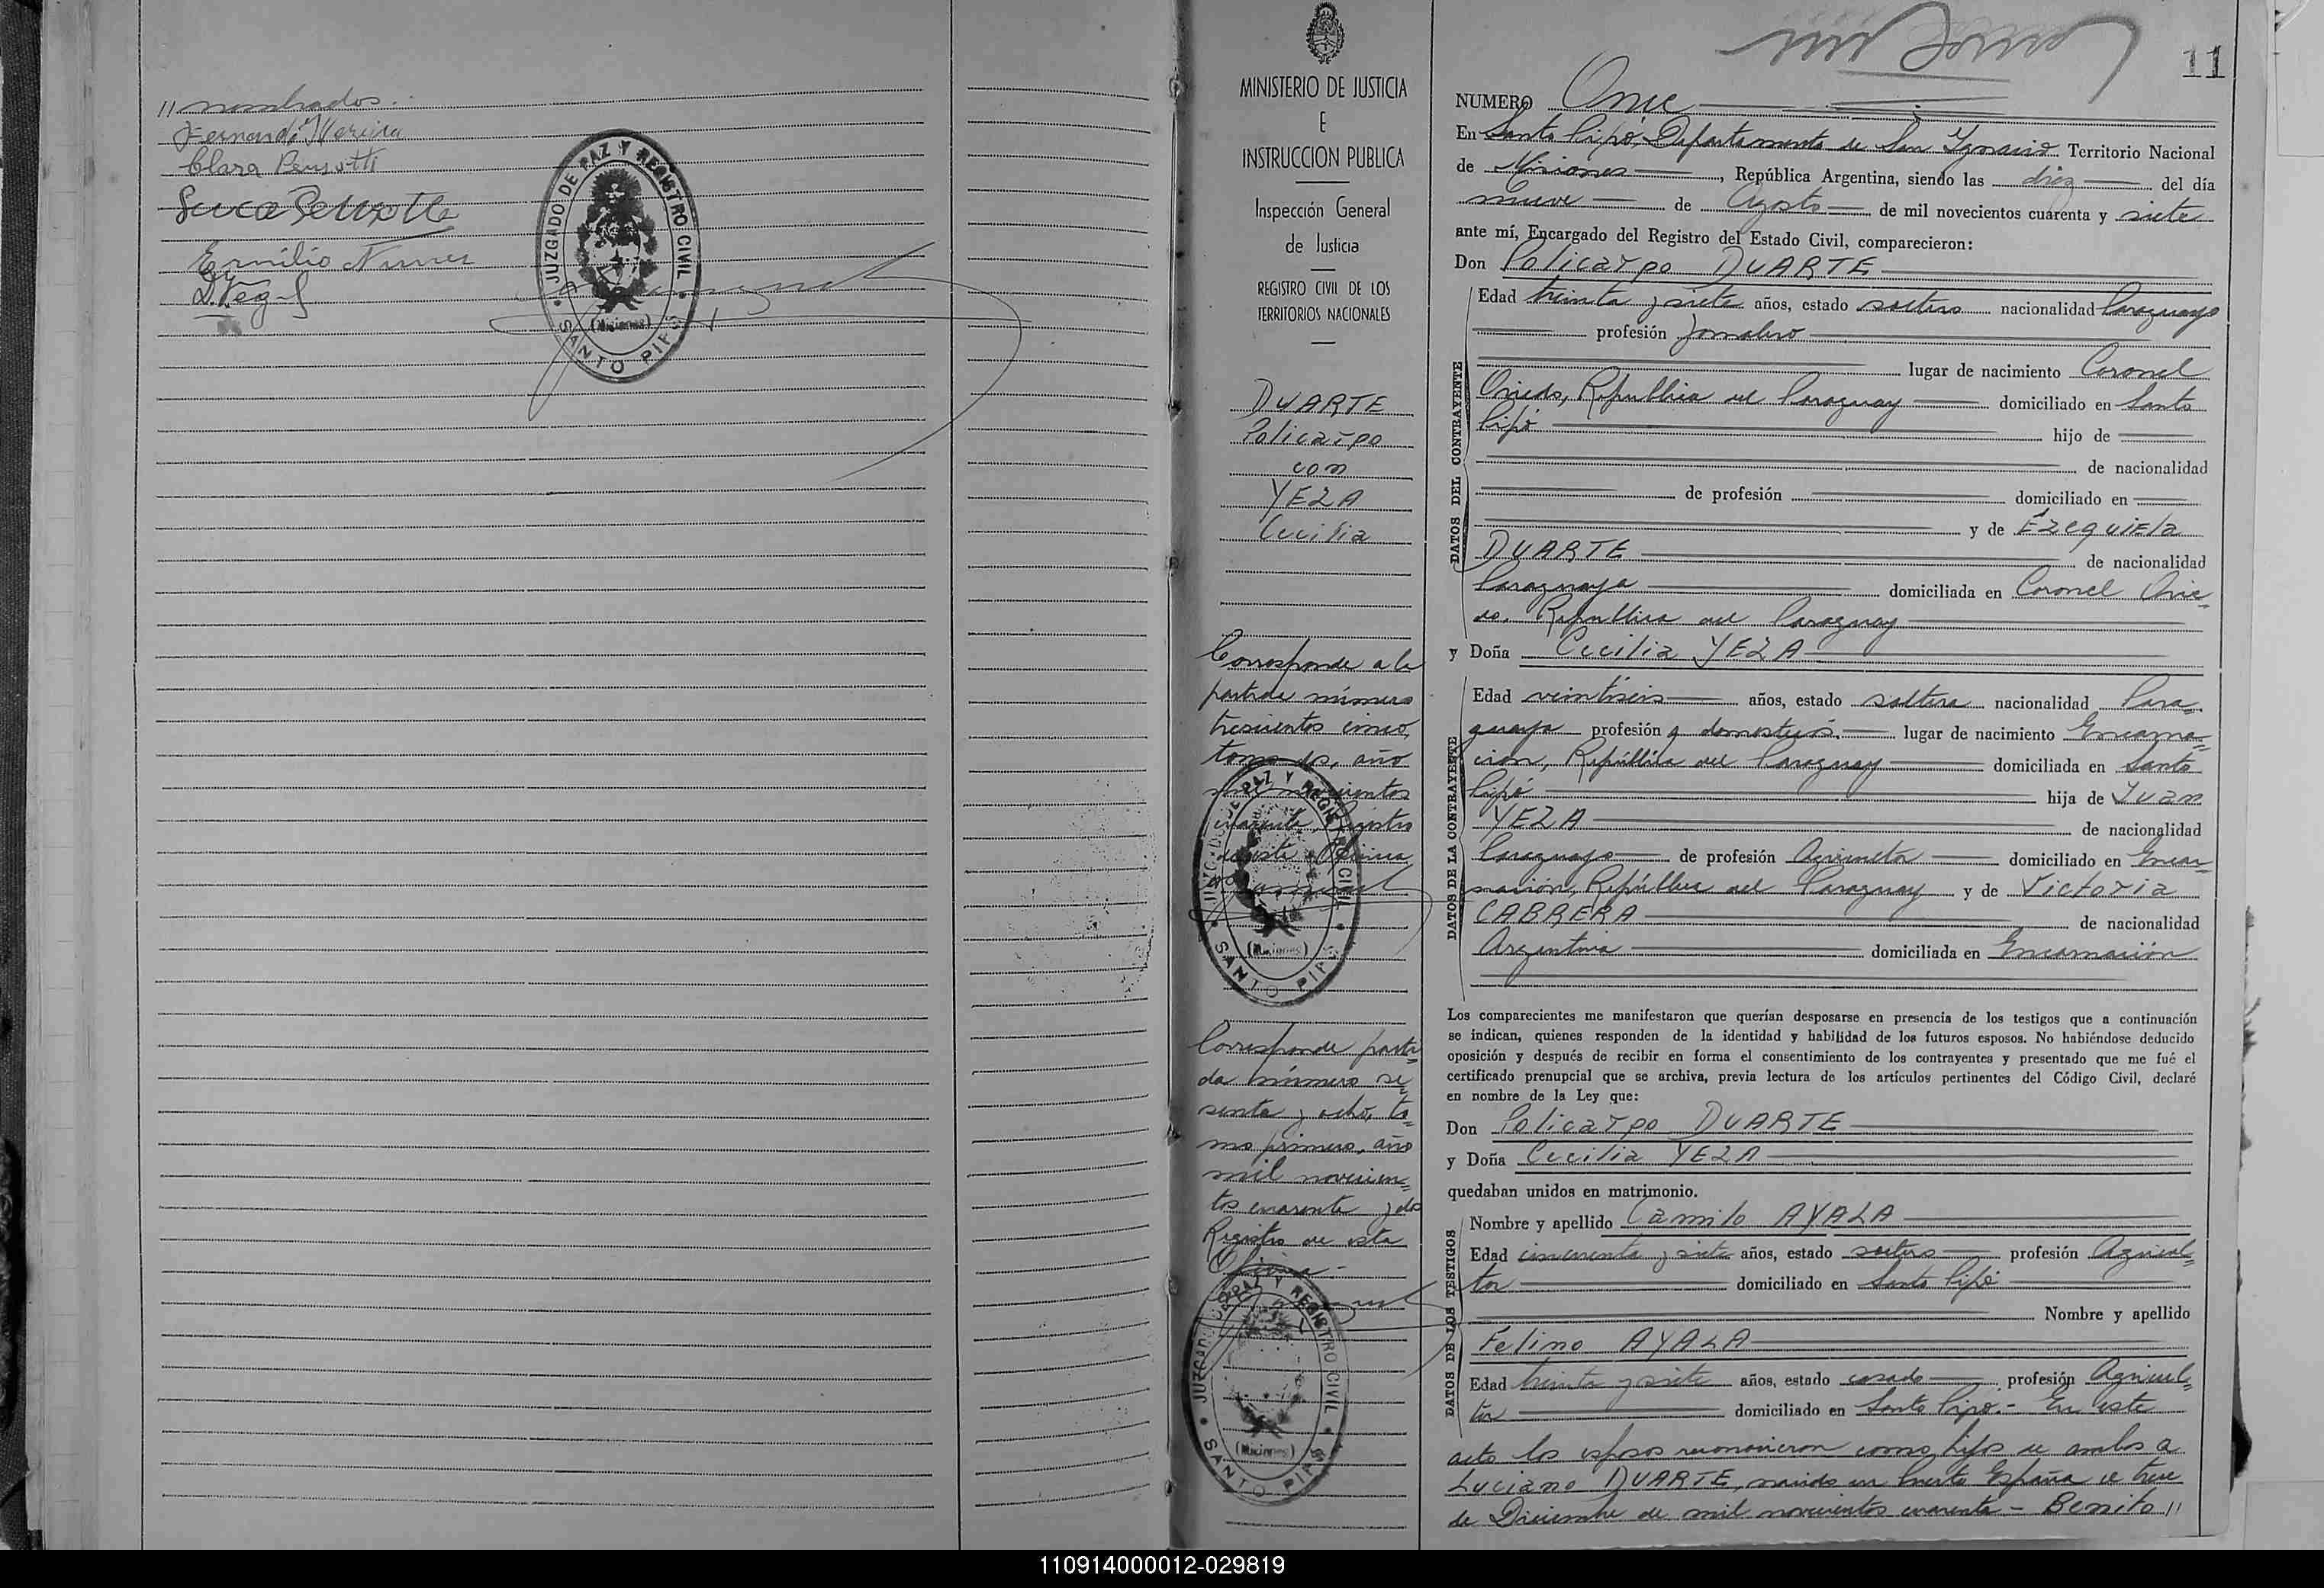 // nombrados.
Fernando Pereira
Clara Penzotti
Emilio Nunes
JUZGADO DE PAZ Y REGISTRO CIVIL
(Misiones)
SANTO PIPÓ
MINISTERIO DE JUSTICIA
E
INSTRUCCION PUBLICA
Inspección General
de Justicia
REGISTRO CIVIL DE LOS
TERRITORIOS NACIONALES
DUARTE
Policarpo
con
YEZA
Cecilia
Corresponde a la
partida número
trescientos cinco,
tomo dos, año
mil novecientos
cuarenta, Registro
de esta Oficina
JUZGADO DE PAZ Y REGISTRO CIVIL
(Misiones)
SANTO PIPÓ
Corresponde parti=
da número se
senta y ocho, to=
mo primero, año
mil novecien=
tos cuarenta y dos
Registro de esta
Oficina.-
JUZGADO DE PAZ Y REGISTRO CIVIL
(Misiones)
SANTO PIPÓ
11
NUMERO Once
En Santo Pipó, Departamento de San Ignacio Territorio Nacional
de Misiones, República Argentina, siendo las diez del día
nueve de Agosto de mil novecientos cuarenta y siete
ante mí, Encargado del Registro del Estado Civil, comparecieron:
Don Policarpo DUARTE
DATOS DEL CONTRAYENTE
Edad treinta y siete años, estado soltero nacionalidad Paraguayo
profesión Jornalero
lugar de nacimiento Coronel
Oviedo, República del Paraguay domiciliado en Santo
Pipó hijo de
de nacionalidad
de profesión domiciliado en
y de Ezequiela
DUARTE de nacionalidad
Paraguaya domiciliada en Coronel Ovie=
do. República del Paraguay
y Doña Cecilia YEZA
DATOS DE LA CONTRAYENTE
Edad veintiseis años, estado soltera nacionalidad Para=
guaya profesión q. domesticos. lugar de nacimiento Encarna=
ción, República del Paraguay domiciliada en Santo
Pipó hija de Juan
YEZA de nacionalidad
Paraguayo de profesión Agricultor domiciliado en Encar=
nación, República del Paraguay y de Victoria
CABRERA de nacionalidad
Argentina domiciliada en Encarnación
Los comparecientes me manifestaron que querían desposarse en presencia de los testigos que a continuación
se indican, quienes responden de la identidad y habilidad de los futuros esposos. No habiéndose deducido
oposición y después de recibir en forma el consentimiento de los contrayentes y presentado que me fué el
certificado prenupcial que se archiva, previa lectura de los artículos pertinentes del Código Civil, declaré
en nombre de la Ley que:
Don Policarpo DUARTE
y Doña Cecilia YEZA
quedaban unidos en matrimonio.
DATOS DE LOS TESTIGOS
Nombre y apellido Camilo AYALA
Edad cincuenta y siete años, estado soltero profesión Agricul=
tor domiciliado en Santo Pipó
Nombre y apellido
Felino AYALA
Edad treinta y siete años, estado casado profesión Agricul=
tor domiciliado en Santo Pipó.- En este
acto los esposos reconocieron como hijos de ambos a
Luciano DUARTE, nacido en Puerto España el trece
de Diciembre de mil novecientos cuarenta - Benito //
110914000012-029819